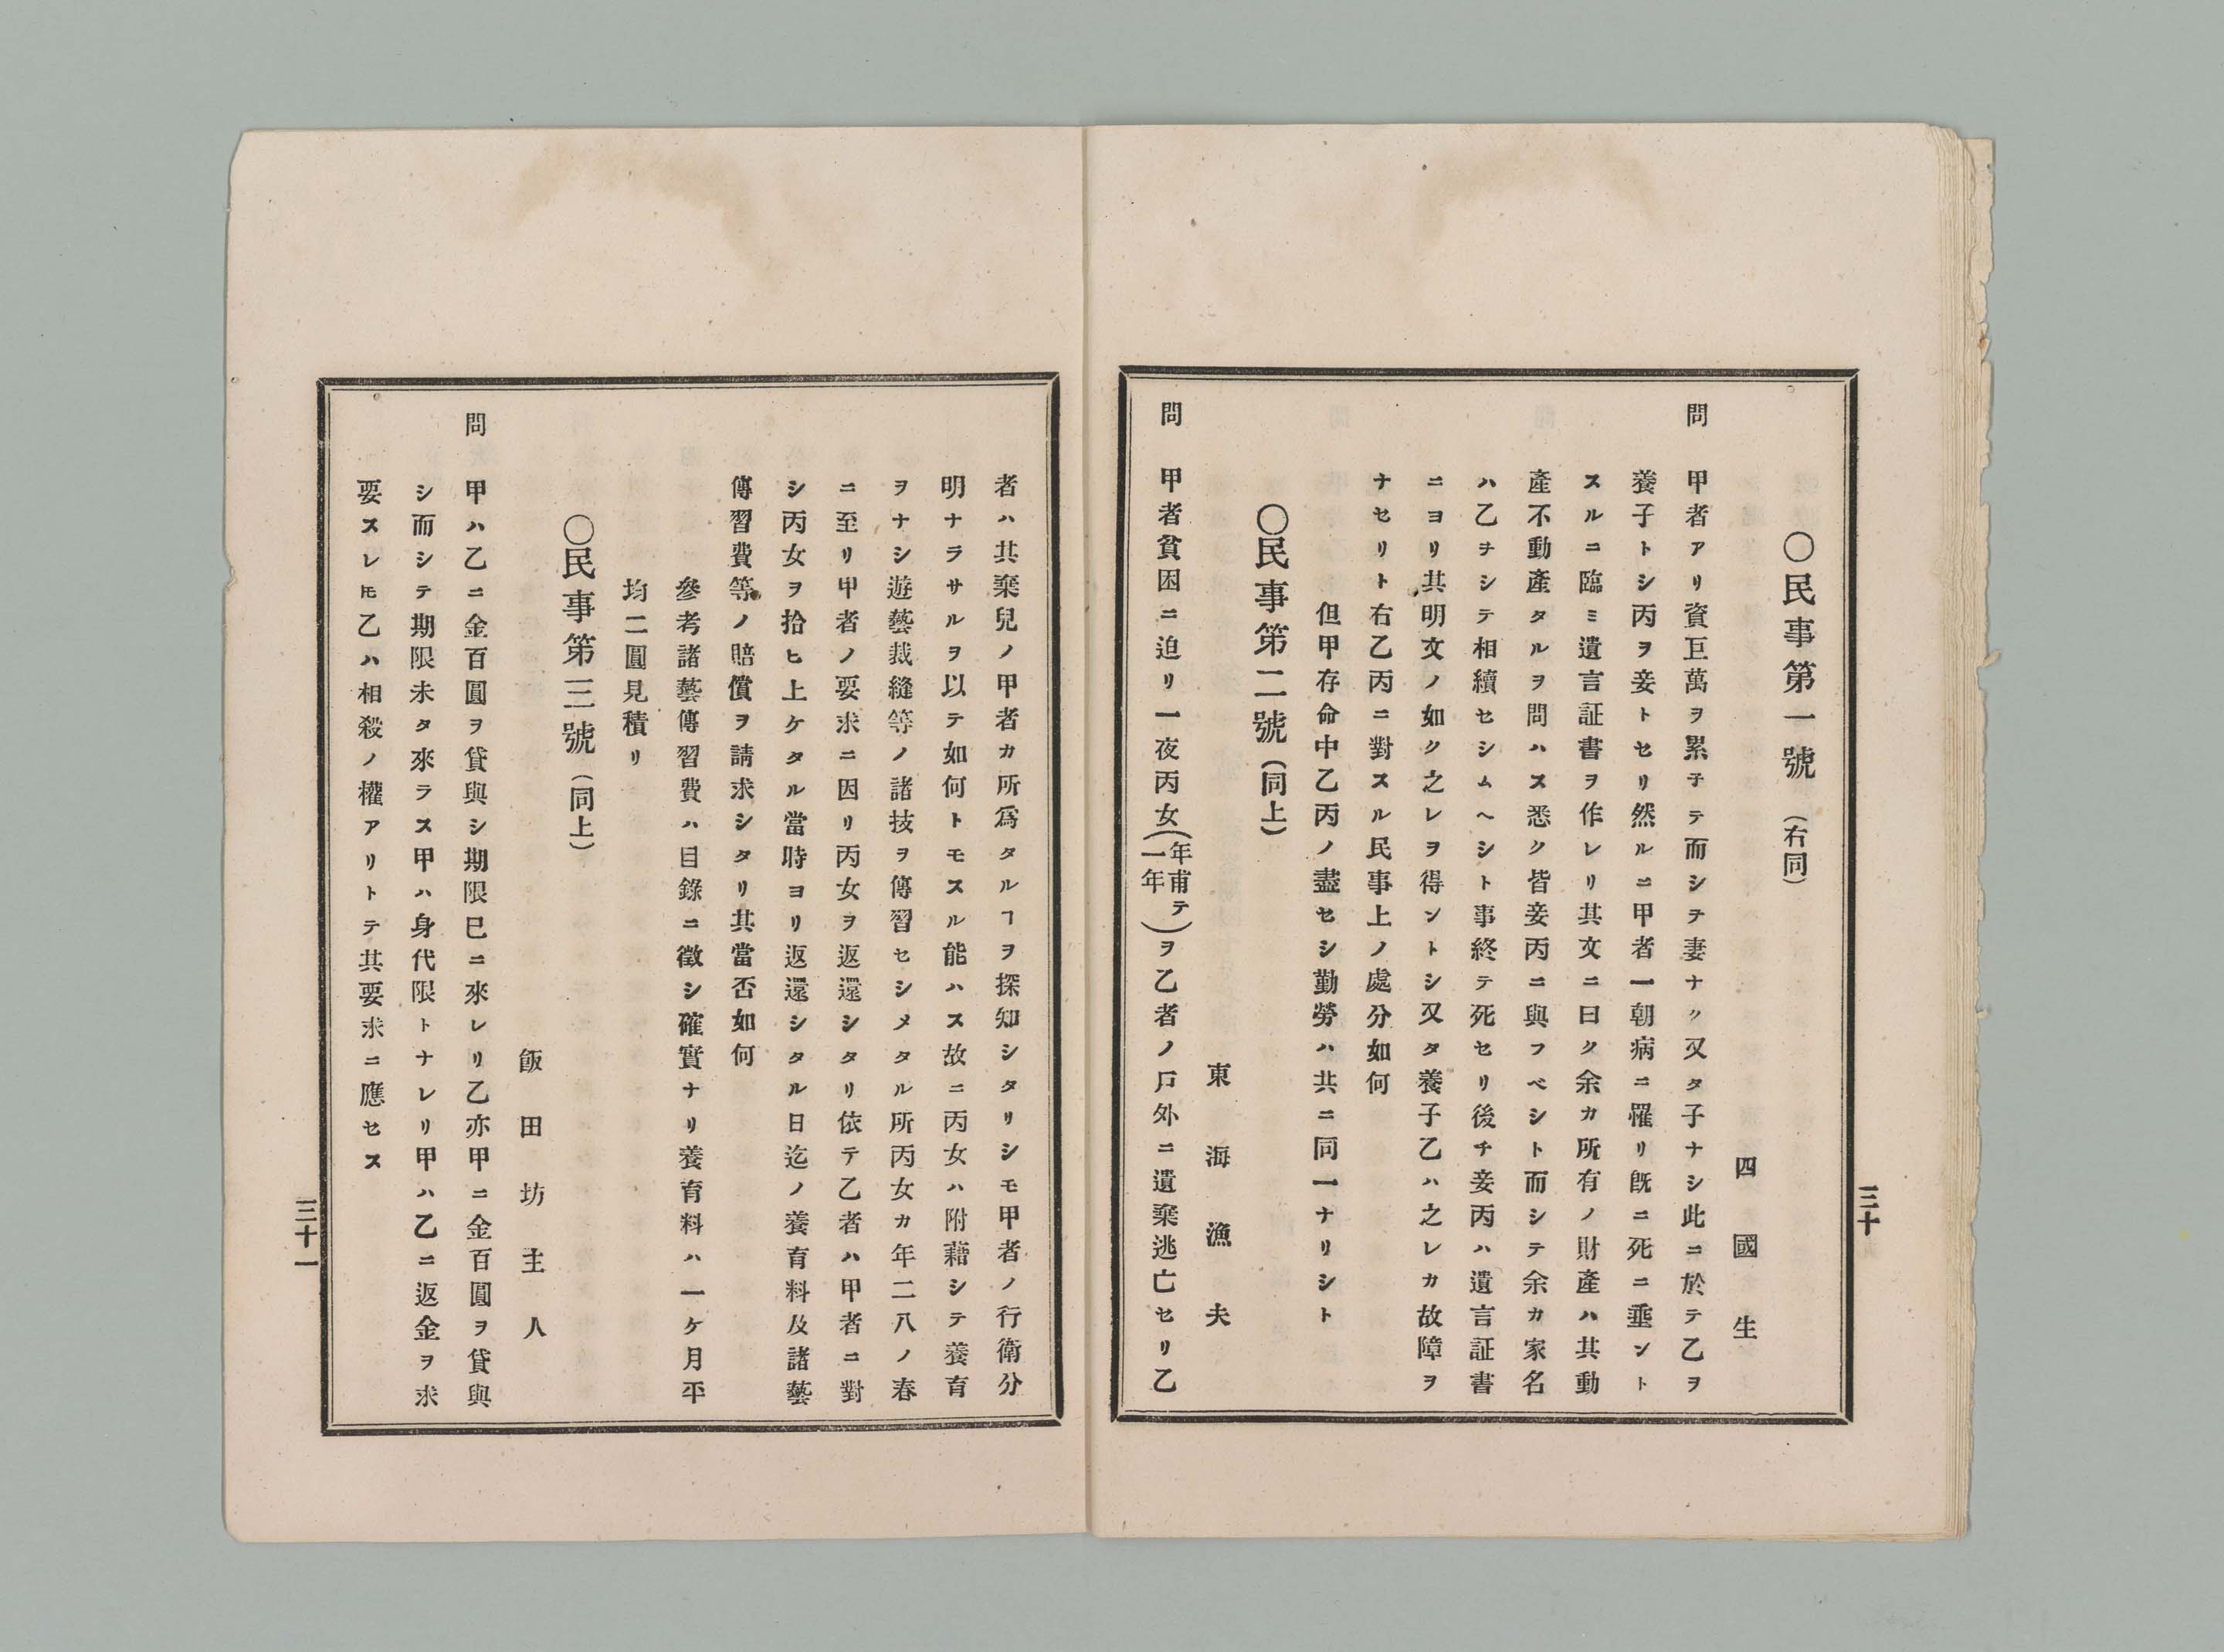 三十
○民事第一號（右同）
四國生
問　甲者アリ資巨萬ヲ累子テ而シテ妻ナク又タ子ナシ此ニ於テ乙ヲ
養子トシ丙ヲ妾トセリ然ルニ甲者一朝病ニ罹リ旣ニ死ニ垂ント
スルニ臨ミ遺言証書ヲ作レリ其文ニ曰ク余カ所有ノ財產ハ其動
產不動產タルヲ問ハス悉ク皆妾丙ニ與フベシト而シテ余カ家名
ハ乙ヲシテ相續セシムヘシト事終テ死セリ後チ妾丙ハ遺言証書
ニヨリ其明文ノ如ク之レヲ得ントシ又タ養子乙ハ之レカ故障ヲ
ナセリト右乙丙ニ對スル民事上ノ處分如何
但甲存命中乙丙ノ盡セシ勤勞ハ共ニ同一ナリシト
○民事第二號（同上）
東海漁夫
問　甲者貧困ニ迫リ一夜丙女（年甫テ一年）ヲ乙者ノ戶外ニ遺棄逃亡セリ乙
者ハ其棄兒ノ甲者カ所爲タルヿヲ探知シタリシモ甲者ノ行衛分
明ナラサルヲ以テ如何トモスル能ハス故ニ丙女ハ附藉シテ養育
ヲナシ遊藝裁縫等ノ諸技ヲ傳習セシメタル所丙女カ年二八ノ春
ニ至リ甲者ノ要求ニ因リ丙女ヲ返還シタリ依テ乙者ハ甲者ニ對
シ丙女ヲ拾ヒ上ケタル當時ヨリ返還シタル日迄ノ養育料及諸藝
傳習費等ノ賠償ヲ請求シタリ其當否如何
參考諸藝傳習費ハ目錄ニ徵シ確實ナリ養育料ハ一ケ月平
均二圓見積リ
○民事第三號（同上）
飯田坊主人
問　甲ハ乙ニ金百圓ヲ貸與シ期限巳ニ來レリ乙亦甲ニ金百圓ヲ貸與
シ而シテ期限未タ來ラス甲ハ身代限トナレリ甲ハ乙ニ返金ヲ求
要スレ𪜈乙ハ相殺ノ權アリトテ其要求ニ應セス
三十一